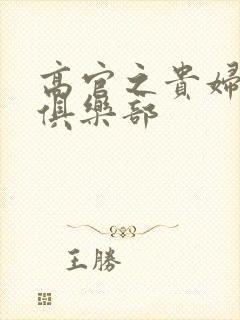 高官之貴婦
俱樂部
王勝